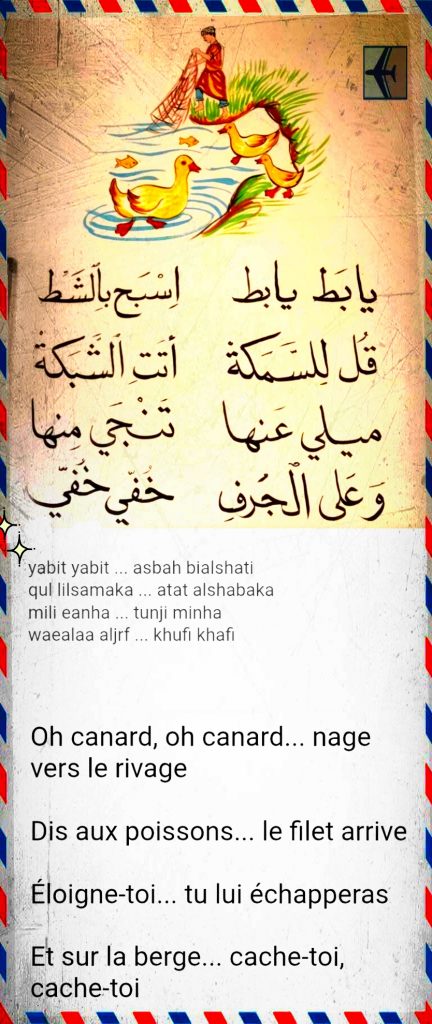 يا بَط يا بط اِسْبَح بِالشَّطْ
قُل لِلسَّمَكةْ أتَتِ الشَّبَكةْ
ميلي عَنها تَنْجَي مِنها
وَعَلى الْجُرفِ خُفّي خُفّي
yabit yabit ... asbah bialshati
qul lilsamaka ... atat alshabaka
mili eanha ... tunji minha
waealaa aljrf ... khufi khafi
Oh canard, oh canard... nage
vers le rivage
Dis aux poissons... le filet arrive
Éloigne-toi... tu lui échapperas
Et sur la berge... cache-toi,
cache-toi